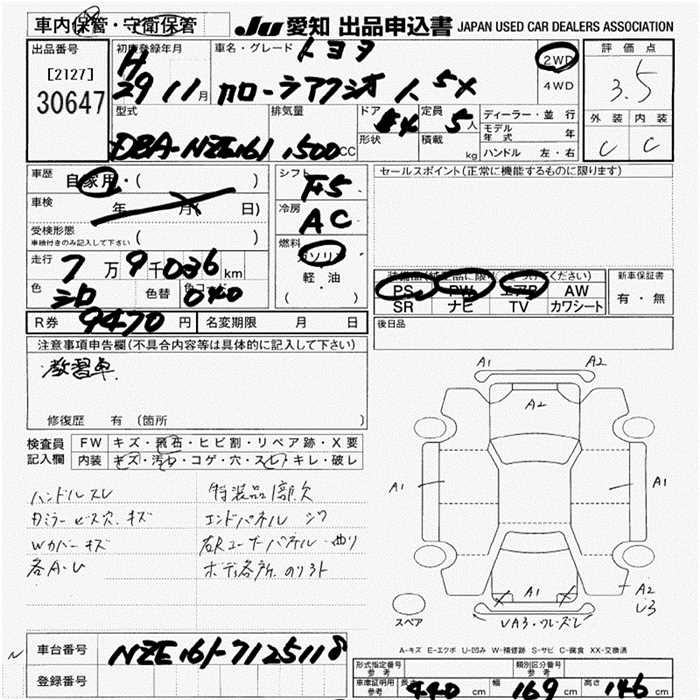 車内保管・守衛保管
JU 愛知 出品申込書 JAPAN USED CAR DEALERS ASSOCIATION
出品番号
[2127]
30647
初度登録年月
H
29 11月
車名・グレード
トヨタ
カローラアクシオ 1.5X
2WD
4WD
評価点
3.5
外装 内装
C C
型式
DBA-NZE161
排気量
1500CC
ドア
4
形状
定員
5人
積載
kg
ディーラー・並行
モデル年式 年
ハンドル 左・右
車歴
自家用・( )
車検
年 月( 日)
受検形態
車検付きのみ記入して下さい ( )
走行
7万9千036km
色
シロ
色替
色コード
040
シフト
F5
冷房
AC
燃料
ガソリン
軽・油
( )
セールスポイント(正常に機能するものに限ります)
PS PW エアB AW
SR ナビ TV カワシート
新車保証書
有・無
後日品
R券 9470円
名変期限 月 日
注意事項申告欄(不具合内容等は具体的に記入して下さい)
教習車
修復歴 有 (箇所 )
検査員記入欄
FW キズ・飛石・ヒビ割・リペア跡・X要
内装 キズ・汚れ・コゲ・穴・スレ・キレ・破レ
ハンドルスレ
特装品1部欠
カミラービス穴、キズ
エンドパネル
Wカバーキズ
右Rコーナーパネル 曲り
各A・U
ボディ各所
A1 A2
A2
A1 A1
A1
A2
U3
スペア
A-キズ E-エクボ U-凹み W-補修跡 S-サビ C-腐食 XX-交換済
車台番号 NZE161-7125118
登録番号
形式指定番号
参考
類別区分番号
参考
車庫証明用
参考
長さ 440cm 幅 169cm 高さ 146cm